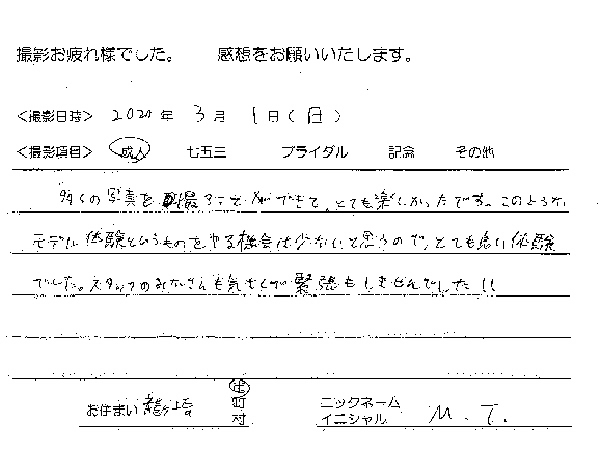 撮影お疲れ様でした。 感想をお願いいたします。
<撮影日時> 2020年 3月 1日(日)
<撮影項目> 成人 七五三 ブライダル 記念 その他
多くの写真を撮ることができて、とても楽しかったです。このような
モデル体験というものをやる機会は少ないと思うので、とても良い体験
でした。スタッフのみなさんも気さくで緊張もしませんでした!!
お住まい 龍ケ崎 市 町 村 ニックネーム イニシャル M.T.